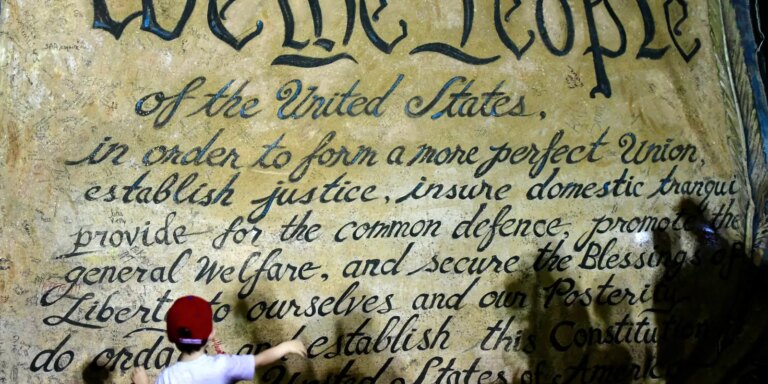 We the People
of the United States,
in order to form a more perfect Union,
establish justice, insure domestic tranqui
provide for the common defence, promote the
general Welfare, and secure the Blessings of
Liberty to ourselves and our Posterity
do ordain and establish this Constitution
United States of America